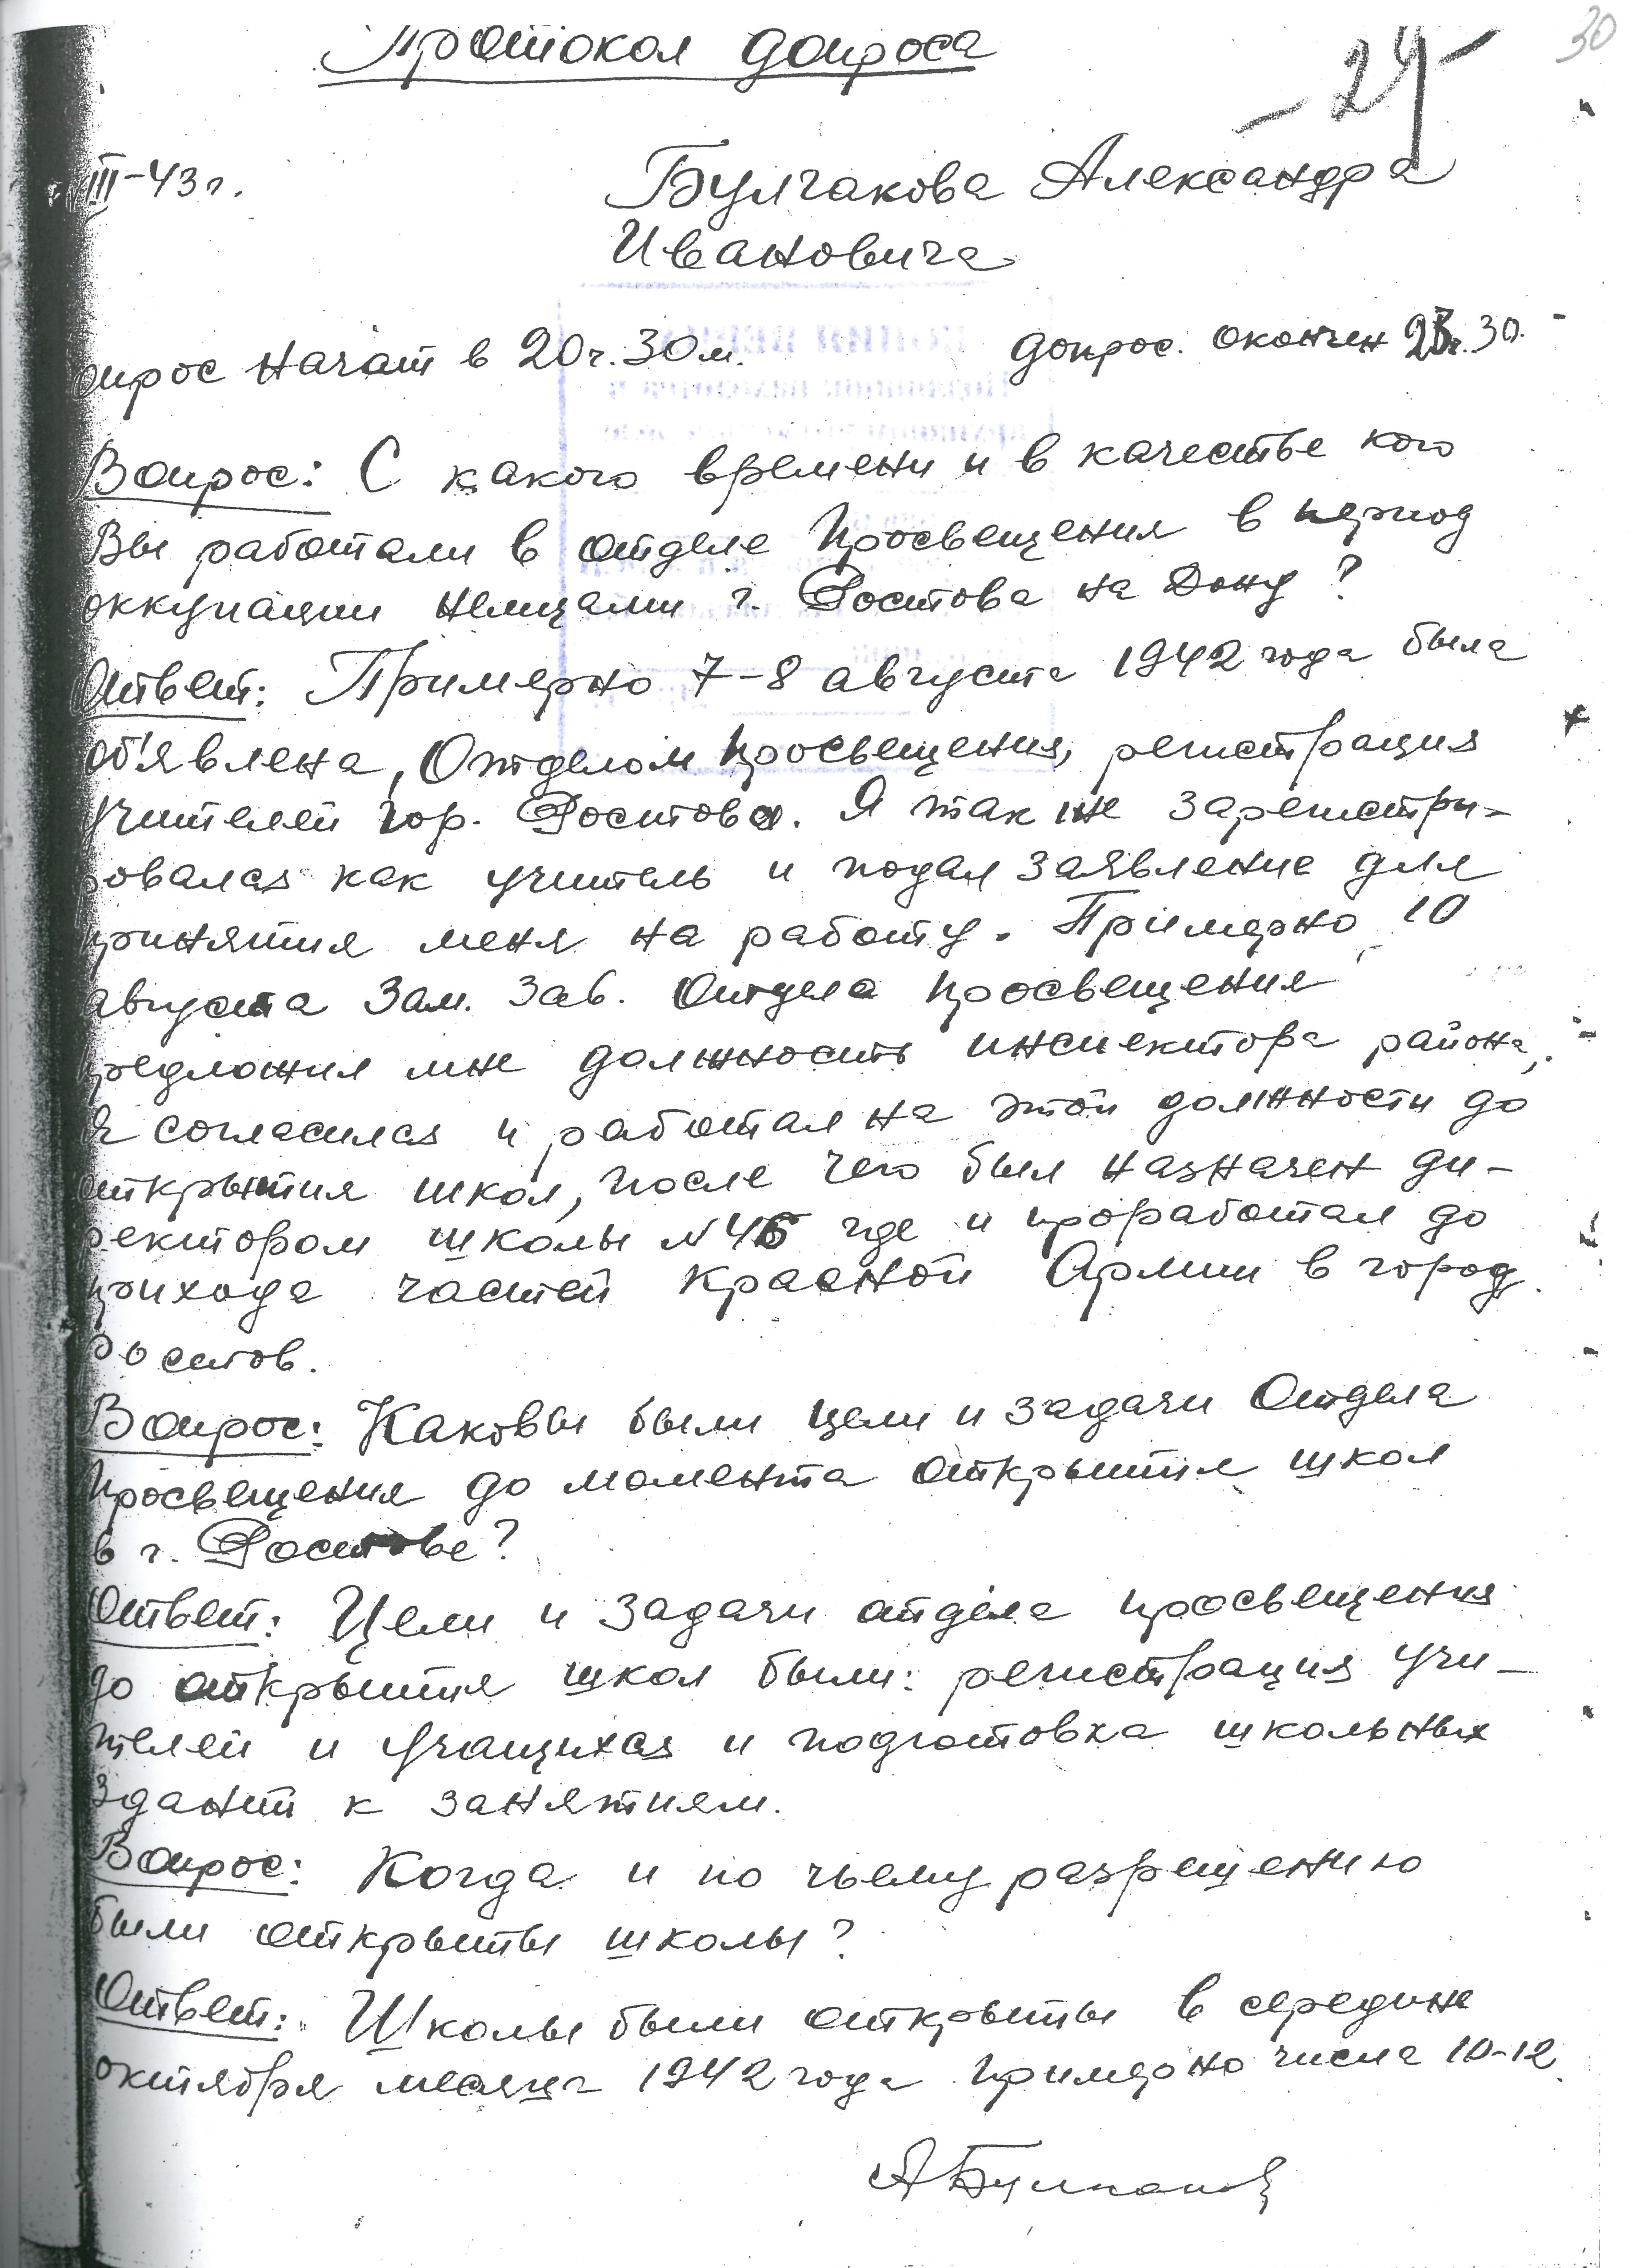 30
Протокол допроса
- 24 -
III-43 г.
Булгакова Александра
Ивановича
опрос начат в 20 ч. 30 м. допрос. окончен 23 ч. 30.
Вопрос: С какого времени и в качестве кого
Вы работали в отделе Просвещения в период
оккупации немцами г. Ростова на Дону?
Ответ: Примерно 7-8 августа 1942 года была
об'явлена, Отделом Просвещения, регистрация
учителей гор. Ростова. Я так же зарегистри-
ровался как учитель и подал заявление для
принятия меня на работу. Примерно 10
августа Зам. Зав. Отдела Просвещения
предложил мне должность инспектора района,
Я согласился и работал на этой должности до
открытия школ, после чего был назначен ди-
ректором школы N 46 где и проработал до
прихода частей Красной Армии в город
Ростов.
Вопрос: Каковы были цели и задачи Отдела
Просвещения до момента открытия школ
в г. Ростове?
Ответ: Цели и задачи отдела просвещения
до открытия школ были: регистрация учи-
телей и учащихся и подготовка школьных
зданий к занятиям.
Вопрос: Когда и по чьему разрешению
были открыты школы?
Ответ: Школы были открыты в середине
октября месяца 1942 года примерно числа 10-12.
АБулгаков